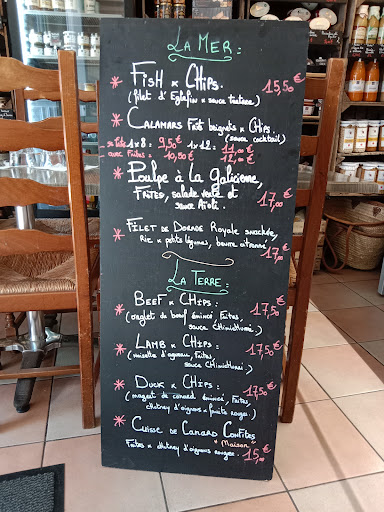 LA MER :
* FISH & CHIPS. 15,50 €
(filet d'Eglefin & sauce tartare)
* CALAMARS Frit beignets & CHIPS.
(sauce cocktail)
1x8 : 9,50€ 1x12 : 11,00 €
avec Frites : 10,50€ 12,00 €
* Poulpe à la Galicienne,
FRITES, salade verte et
sauce Aïoli. 17,00 €
* FILET DE DORADE Royale snackée,
Riz & petits légumes, beurre citronné. 17,00 €
LA TERRE :
* BEEF & CHIPS : 17,50€
(onglet de boeuf émincé, Frites,
sauce CHimichurri.)
* LAMB & CHIPS : 17,50€
(noisette d'agneau, Frites,
sauce CHimichurri.)
* DUCK & CHIPS : 17,50€
(magret de canard émincé, Frites,
chutney d'oignons & fruits rouges.)
* CUISSE DE CANARD CONFITES
"Maison"
Frites & chutney d'oignons rouges. 15,00 €